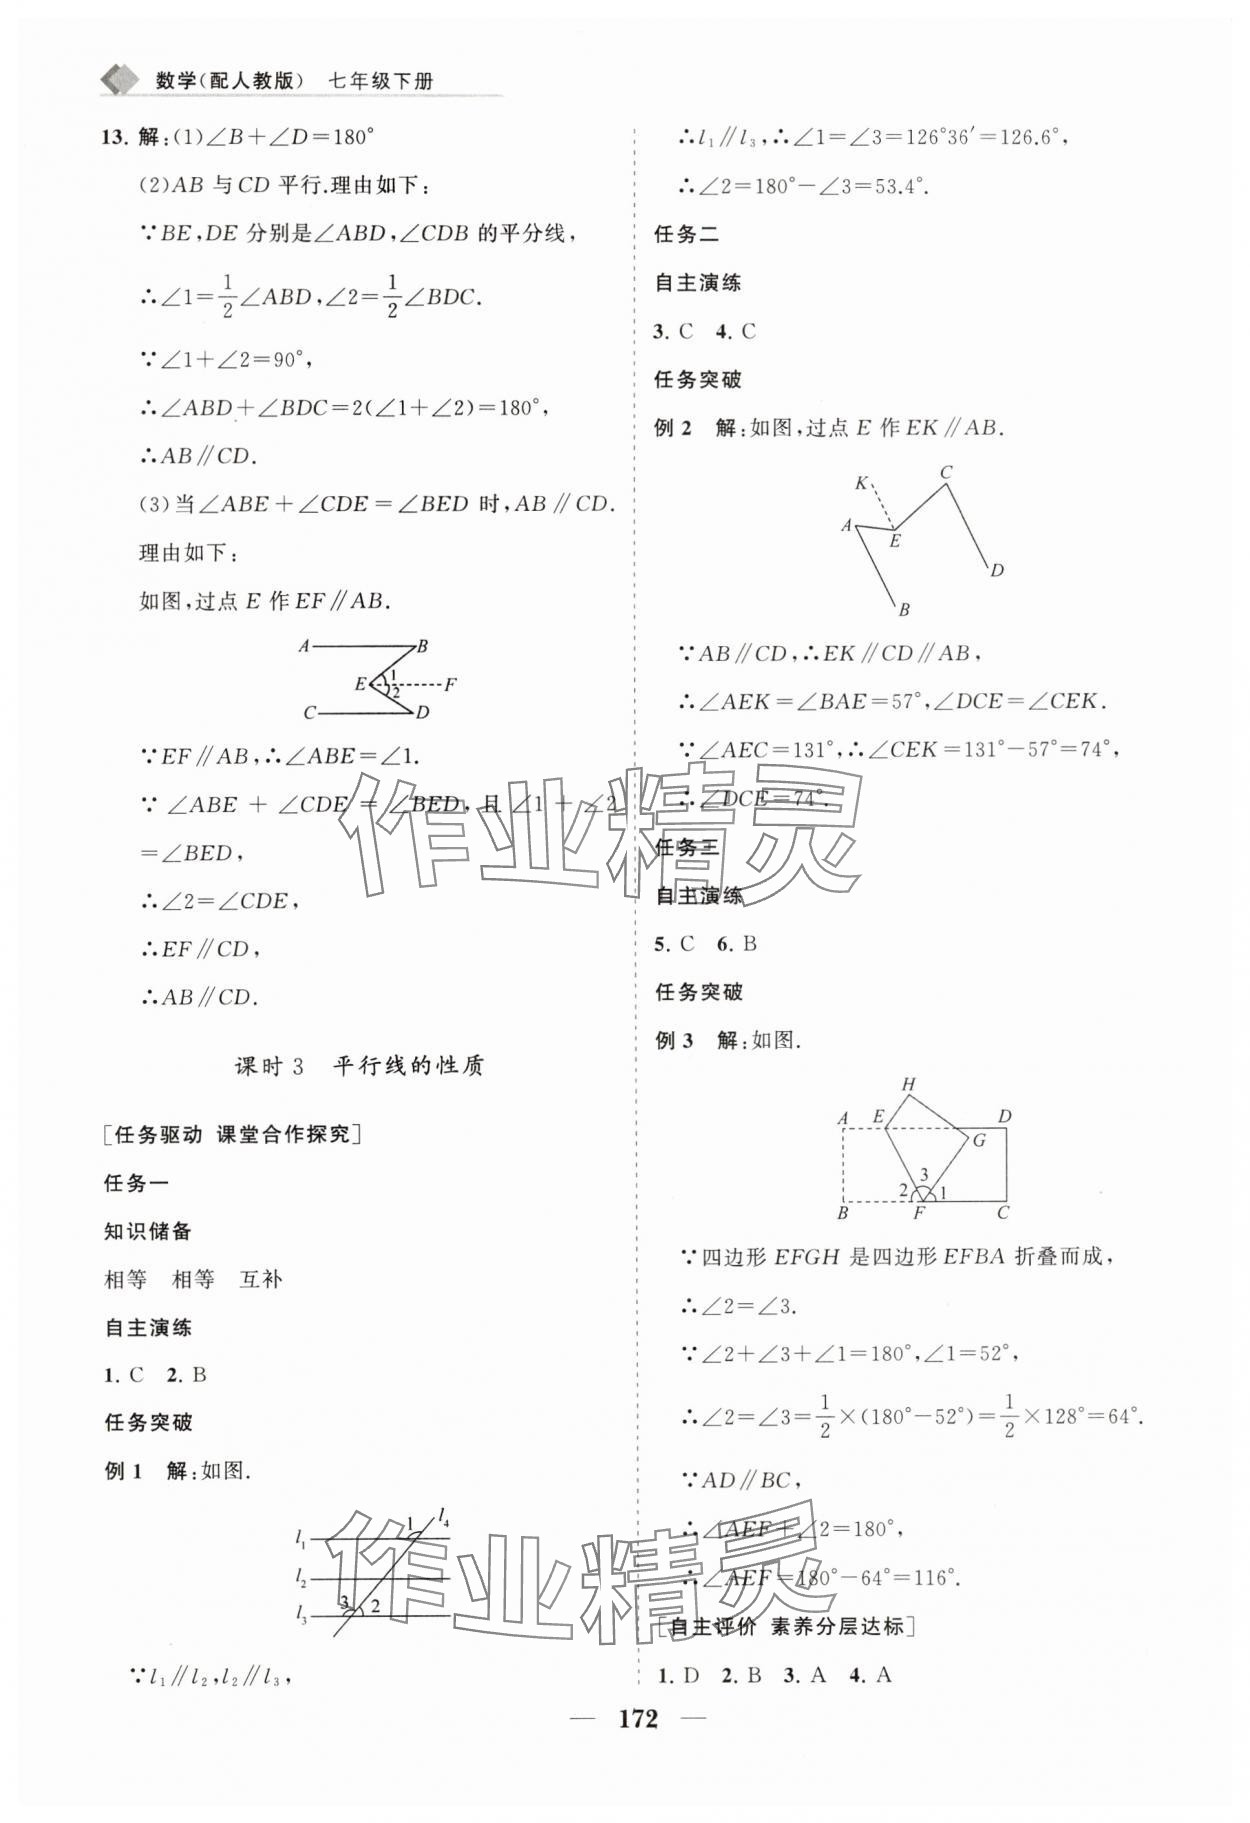 数学(配人教版) 七年级下册
13. 解:(1)∠B+∠D=180°
(2)AB 与CD 平行.理由如下:
∵BE,DE 分别是∠ABD,∠CDB 的平分线,
∴∠1=1/2∠ABD,∠2=1/2∠BDC.
∵∠1+∠2=90°,
∴∠ABD+∠BDC=2(∠1+∠2)=180°,
∴AB∥CD.
(3)当∠ABE+∠CDE=∠BED 时,AB∥CD.
理由如下:
如图,过点 E 作EF∥AB.
A B
E 1 2 F
C D
∵EF∥AB,∴∠ABE=∠1.
∵ ∠ABE + ∠CDE = ∠BED, 且 ∠1 + ∠2
=∠BED,
∴∠2=∠CDE,
∴EF∥CD,
∴AB∥CD.
课时 3 平行线的性质
[任务驱动 课堂合作探究]
任务一
知识储备
相等 相等 互补
自主演练
1. C 2. B
任务突破
例 1 解:如图.
l₁ 1 l₄
l₂
l₃ 3 2
∵l₁∥l₂,l₂∥l₃,
∴l₁∥l₃,∴∠1=∠3=126°36′=126.6°,
∴∠2=180°-∠3=53.4°.
任务二
自主演练
3. C 4. C
任务突破
例 2 解:如图,过点 E 作EK∥AB.
K C
A E
D
B
∵AB∥CD,∴EK∥CD∥AB,
∴∠AEK=∠BAE=57°,∠DCE=∠CEK.
∵∠AEC=131°,∴∠CEK=131°-57°=74°,
∴∠DCE=74°.
任务三
自主演练
5. C 6. B
任务突破
例 3 解:如图.
H
A E D
G
2 3 1
B F C
∵四边形EFGH 是四边形EFBA 折叠而成,
∴∠2=∠3.
∵∠2+∠3+∠1=180°,∠1=52°,
∴∠2=∠3=1/2×(180°-52°)=1/2×128°=64°.
∵AD∥BC,
∴∠AEF+∠2=180°,
∴∠AEF=180°-64°=116°.
[自主评价 素养分层达标]
1. D 2. B 3. A 4. A
— 172 —
作业精灵
作业精灵